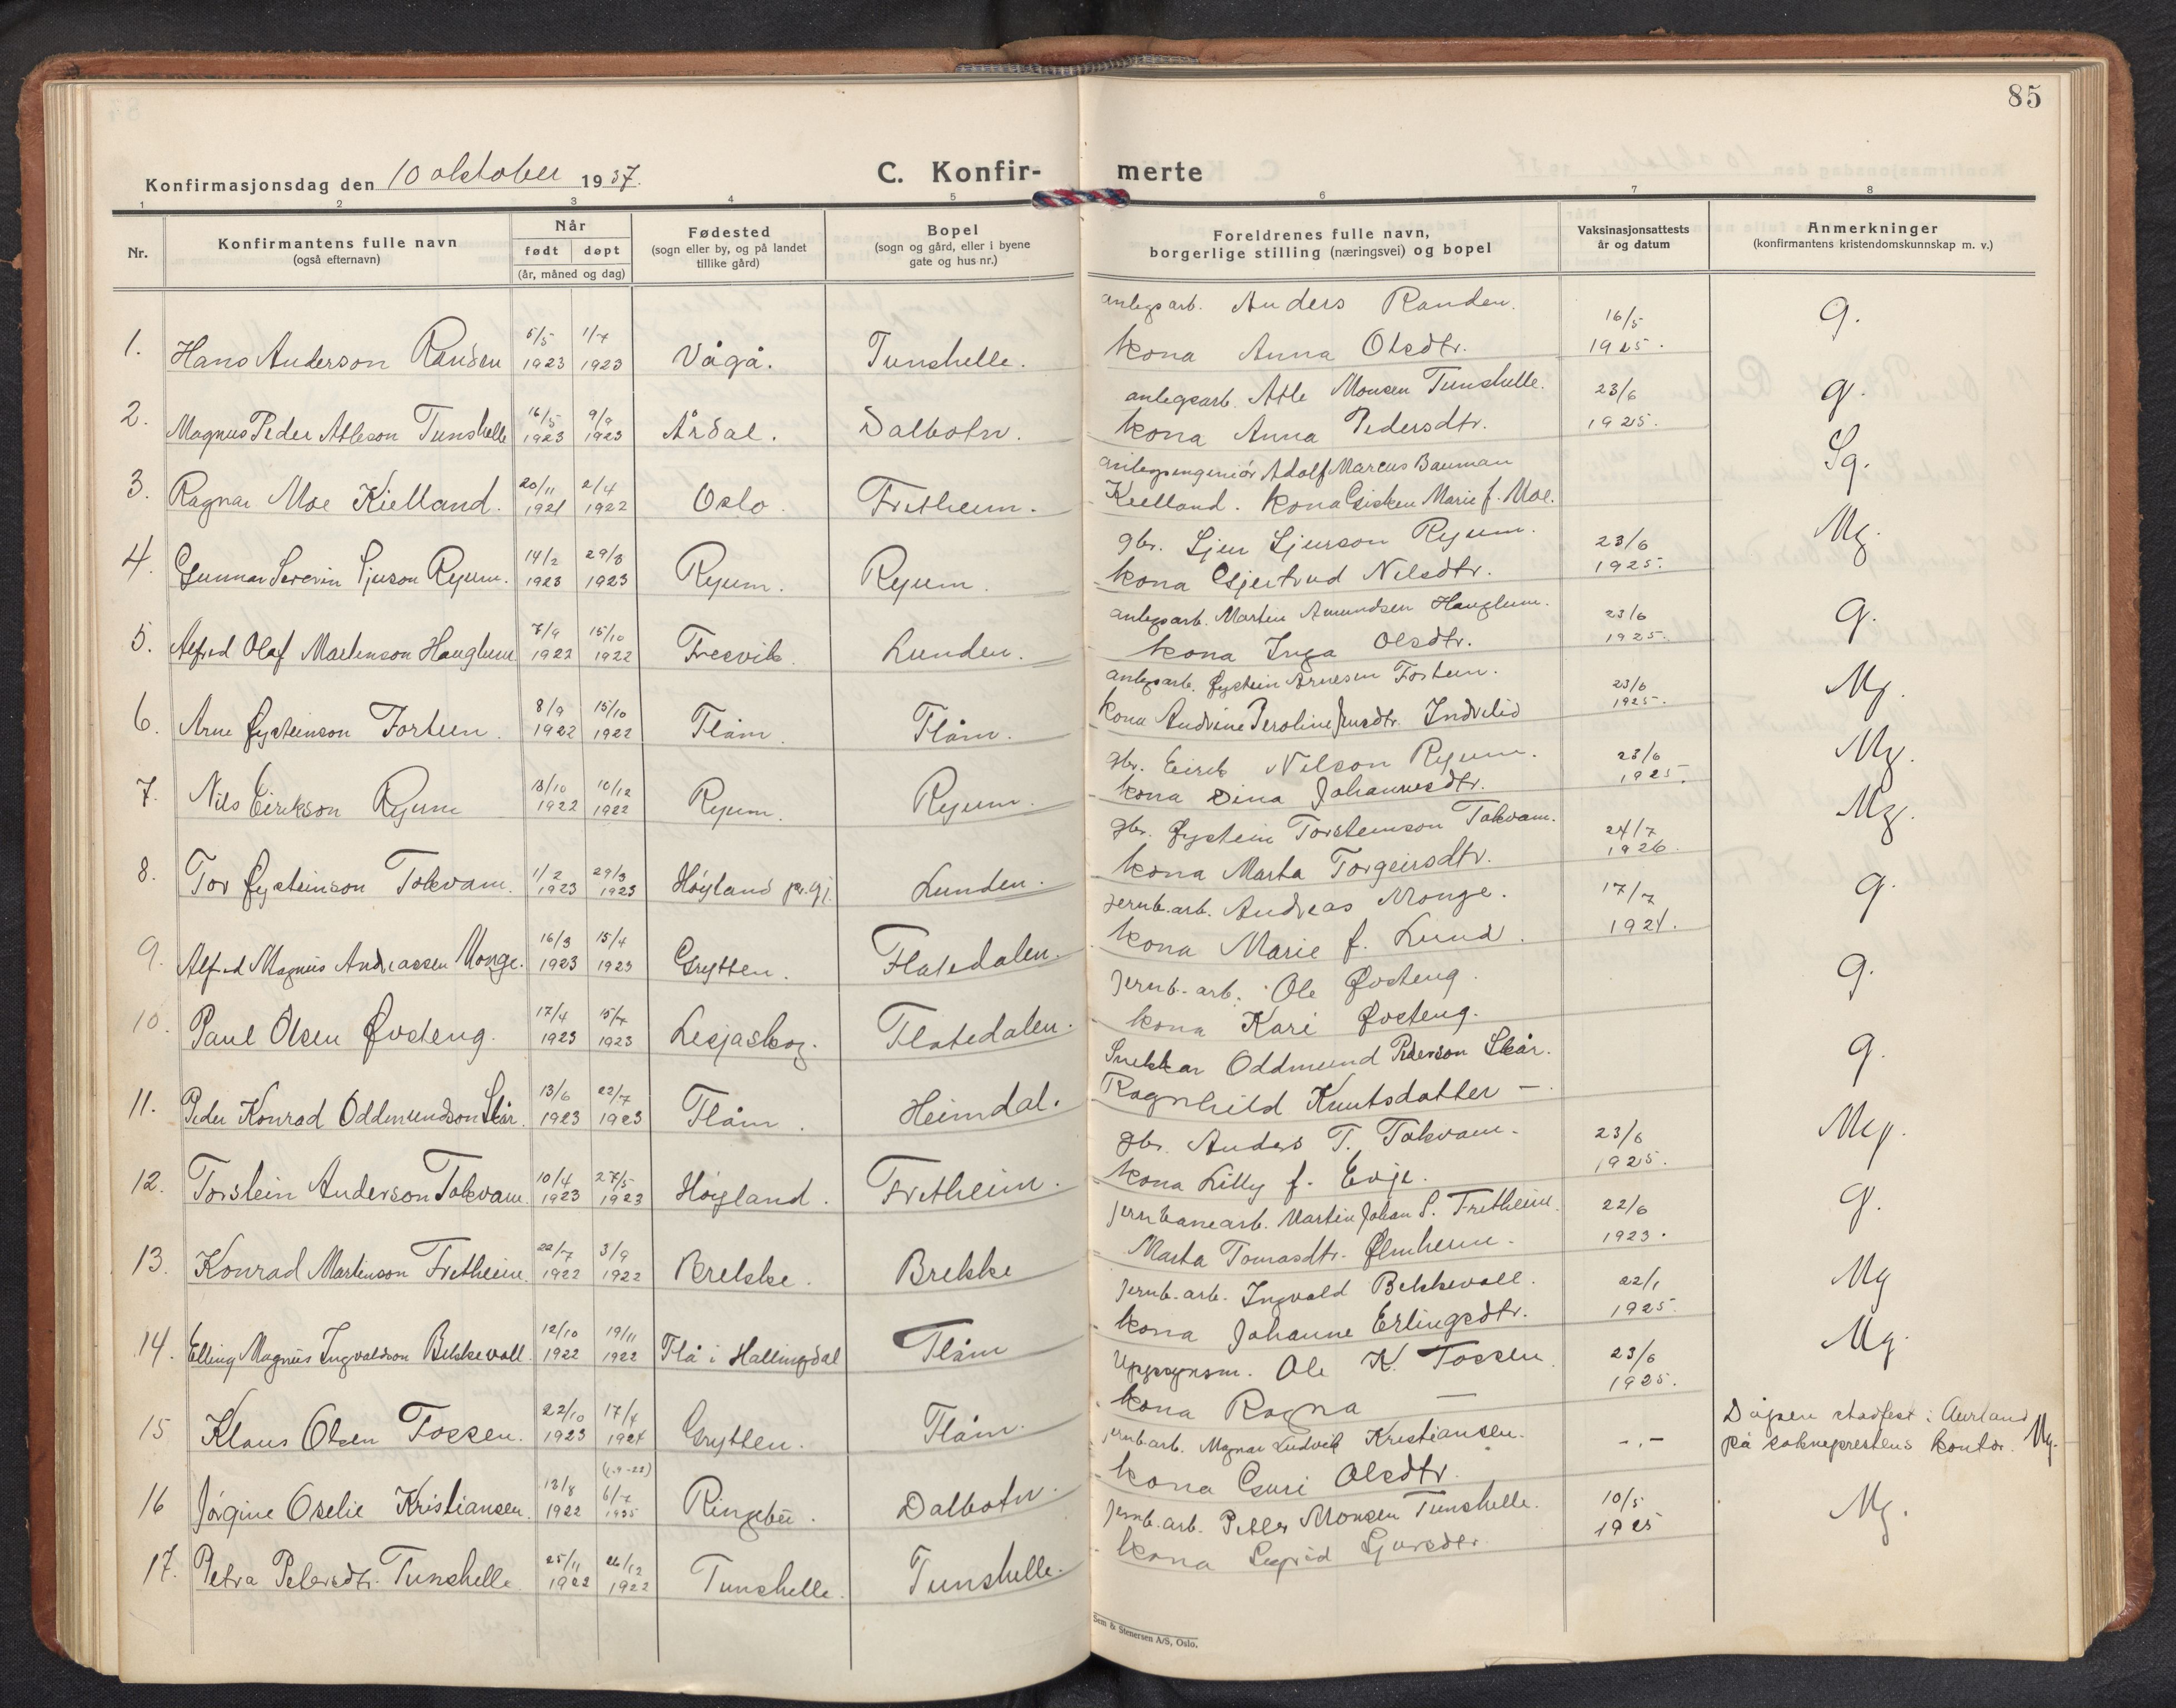 85
Konfirmasjonsdag den 10 oktober 1937.
C. Konfir- merte
1 2 3 4 5 6 7 8
Nr.
Konfirmantens fulle navn
(også efternavn)
Når
født døpt
(år, måned og dag)
Fødested
(sogn eller by, og på landet
tillike gård)
Bopel
(sogn og gård, eller i byene
gate og hus nr.)
Foreldrenes fulle navn,
borgerlige stilling (næringsvei) og bopel
Vaksinasjonsattests
år og datum
Anmerkninger
(konfirmantens kristendomskunnskap m. v.)
anlegsarb. Anders Randen. 16/5 g.
1. Hans Anderson Randen 5/5 1923 1/7 1923 Vågå. Tunshelle. kona Anna Olsdtr. 1925.
anlegsarb. Atle Monsen Tunshelle. 23/6 g.
2. Magnus Peder Atleson Tunshelle 16/5 1923 9/9 1923 Årdal. Dalbotn. kona Anna Pedersdtr. 1925.
anlegsingeniör Adolf Marcus Bauman Sg.
3. Ragnar Moe Kielland. 20/11 1921 2/4 1922 Oslo. Fretheim. Kielland. kona Gisken Marie f. Moe.
gbr. Sjur Sjurson Ryum. 23/6 Mg.
4. Gunnar Severin Sjurson Ryum. 14/2 1923 29/3 1923 Ryum. Ryum. kona Gjertrud Nilsdtr. 1925.
anlegsarb. Martin Amundsen Hauglum. 23/6 g.
5. Alfred Olaf Martinson Hauglum 7/9 1922 15/10 1922 Fresvik. Lunden. kona Inga Olsdtr. 1925.
anlegsarb. Øystein Arnesen Fortun. 23/6 Mg.
6. Arne Øysteinson Fortun. 8/9 1922 15/10 1922 Flåm. Flåm. kona Andrine Peroline Jensdtr. Indrelid 1925.
gbr. Eirik Nilson Ryum. 23/6 Mg.
7. Nils Eirikson Ryum 13/10 1922 10/12 1922 Ryum. Ryum. kona Dina Johannesdtr. 1925.
gbr. Øystein Torsteinson Tokvam. 24/7 Mg.
8. Tor Øysteinson Tokvam. 1/2 1923 29/3 1923 Høyland pr.gj. Lunden. kona Marta Torgeirsdtr. 1926.
jernb.arb. Andreas Monge. 17/7 g.
9. Alfred Magnus Andreassen Monge. 16/3 1923 15/4 1923 Grytten. Flatedalen. kona Marie f. Lund. 1924.
jernb.arb. Ole Øvsteng. g.
10. Paul Olsen Øvsteng. 17/4 1923 15/7 1923 Lesjaskog. Flatedalen. kona Kari Øvsteng.
Snekkar Oddmund Pederson Skår. g.
11. Peder Konrad Oddmundson Skår. 13/6 1923 22/7 1923 Flåm. Heimdal. Ragnhild Knutsdatter —.
gbr. Anders T. Tokvam. 23/6 Mg.
12. Torstein Anderson Tokvam. 10/4 1923 27/5 1923 Høyland. Fretheim. kona Lilly f. Evje. 1925.
jernbanearb. Martin Johan S. Fretheim. 22/6 g.
13. Konrad Martinson Fretheim. 22/7 1922 3/9 1922 Brekke. Brekke Marta Tomasdtr. Ølmheim. 1923.
jernb.arb. Ingvald Bekkevoll. 22/1 Mg
14. Elling Magnus Ingvaldson Bekkevoll 12/10 1922 19/11 1922 Flå i Hallingdal Flåm kona Johanne Erlingsdtr. 1925.
Uppsynsm. Ole K. Fossen. 23/6 Mg.
15 Klaus Olsen Fossen. 22/10 1923 17/4 1924 Grytten. Flåm. kona Ragna — 1925.
jernbarb. Magnar Ludvik Kristiansen. -.- Dåpen stadfest i Aurland
på sokneprestens kontor. Mg.
16 Jörgine Oselie Kristiansen. 13/8 1922 6/7 1935 Ringebu. Dalbotn. kona Guri Olsdtr.
jernb.arb. Petter Monsen Tunshelle. 10/5 Mg.
17. Petra Petersdtr. Tunshelle 25/11 1922 26/12 1922 Tunshelle. Tunshelle. kona Sigrid Sjursdtr. 1925
Sem & Stenersen A/S, Oslo.